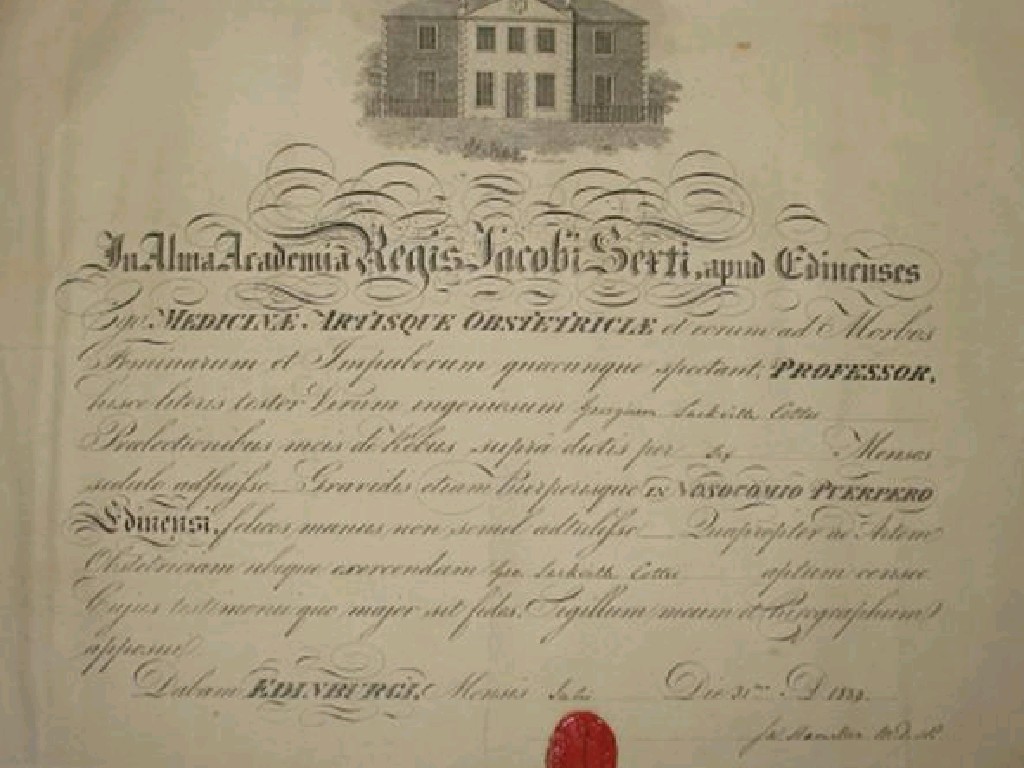 In Alma Academia Regis Jacobi Sexti, apud Edinenses
Ego MEDICINÆ ARTISQUE OBSTETRICIÆ et eorum ad Morbos
Feminarum et Impuberum quæcunque spectant, PROFESSOR,
hisce literis testor Virum ingenuum Sackville
Prælectionibus meis de Rebus supra dictis per Sex Menses
sedulo adfuisse Gravidis etiam Puerperisque IN NOSOCOMIO PUERPERO
Edinensi, felices manus non semel adtulisse Quapropter ad Artem
Obstetriciam ubique exercendam Geo. Sackville aptum censeo.
Cujus testimonii quo major sit fides, Sigillum meum et Chirographum
apposui
Datam EDINBURGI, Mensis Die 31mo A.D.
Ja. Hamilton M.D.